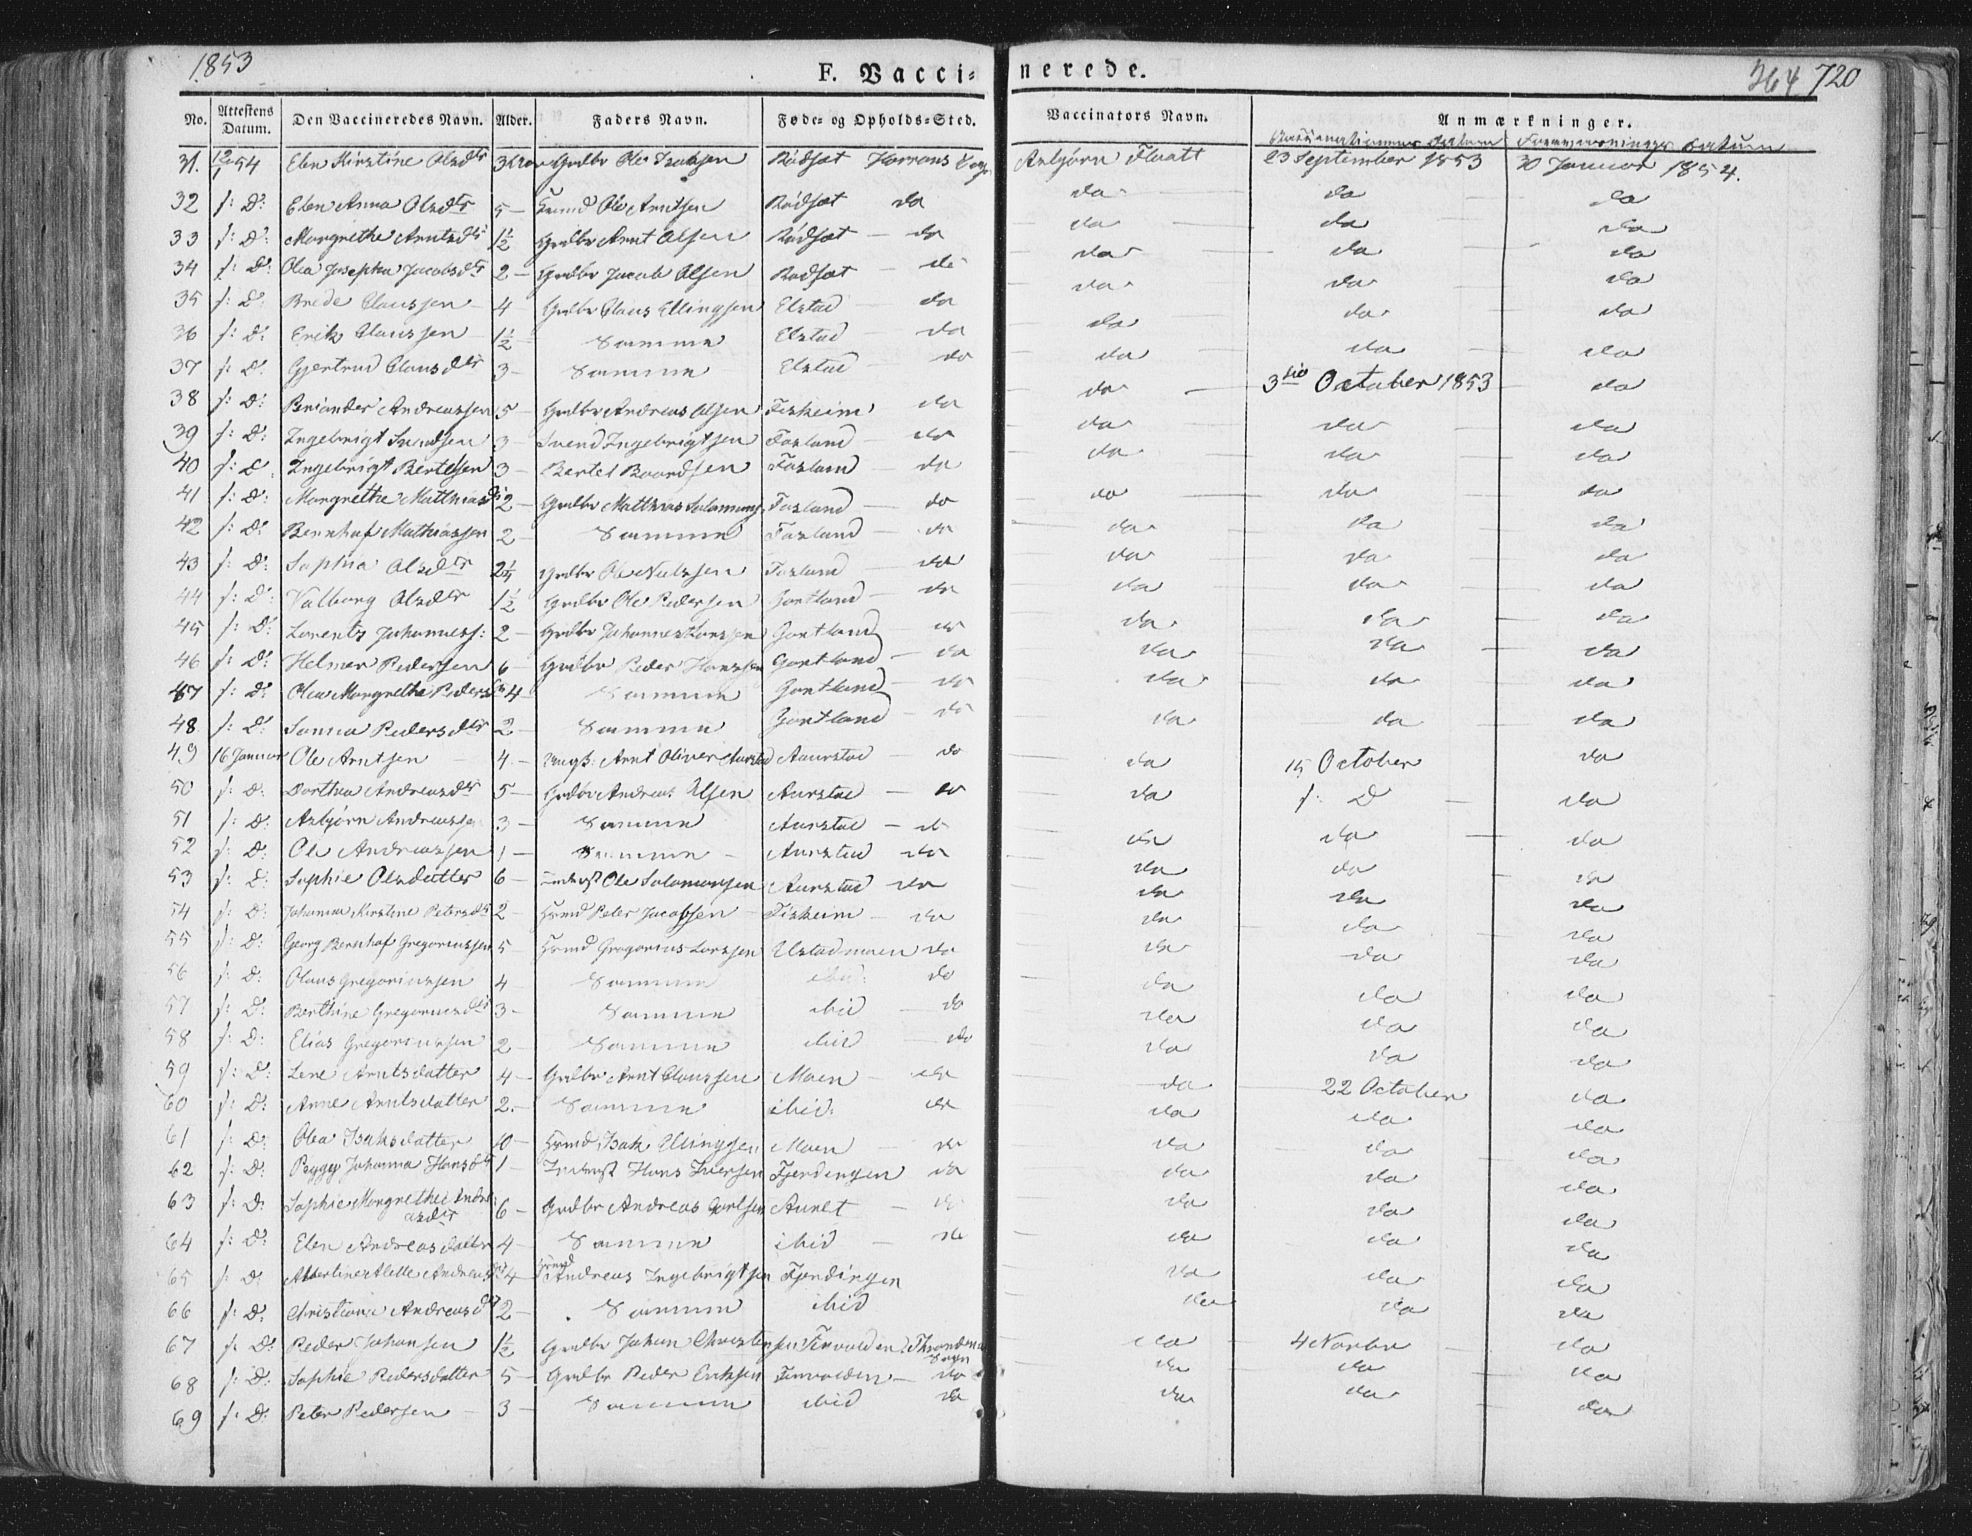 1853 F. Vacci- nerede. 264 720
No. Attestens Datum. Den Vaccineredes Navn. Alder. Faders Navn. Føde- og Opholds-Sted. Vaccinators Navn. Anmærkninger.
Vaccinationens Datum Forevisnings Datum
31. 12/1 54 Elen Kirstine Olsdtr 3 Grdbr Ole Isaksen Rødsæt Asbjørn Flaatt 23 September 1853 30 Januar 1854.
32 f: D: Elen Anna Olsdtr 5 - Ole Arntsen Rødsæt do do do do
33 f: D: Margrethe Arntsdtr 1½ Grdbr Arnt Olsen Rødsæt - do do do do
34 f: D: Olea Josepha Jacobsdtr 2 - Grdbr Jacob Olsen Rødsæt - do do do do
35 f: D: Brede Claussen 4 Grdbr Claus Ellingsen Elstad - do do do do
36 f: D: Erik Claussen 1½ Samme Elstad - do do do do
37 f: D: Gjertrud Clausdtr 3 - Samme Elstad - do do do do
38 f: D: Andreassen 5 - Grdbr Andreas Olsen Fiskeim do do 3die October 1853 do
39 f: D: Ingebrigt Svendsen 3 - Svend Ingebrigtsen Fosland - do do do do
40 f: D: Ingebrigt Bertelsen 3 - Bertel Baardsen Fosland - do do do do
41 f: D: Margrethe Matthiasdtr 2 - Grdbr Matthias Salamons. Fosland - do do do do
42 f: D: Bernhof Mathiassen 2 Samme Fosland - do do do do
43 f: D: Sophia Olsdtr 2¼ Grdbr Ole Nielssen Fosland - do do do do
44 f: D: Valborg Olsdtr 1½ Grdbr Ole Pedersen Gartland - do do do do
45 f: D: Lorents Johanness: 2 - Grdbr Johannes Larssen Gartland do do do do
46 f: D: Helmer Pedersen 6 - Grdbr Peder Hanssen Gartland - do do do do
47 f: D: Olea Margrethe Pedersdtr 4 Samme Gartland - do do do do
48 f: D: Sanna Pedersdtr 2 - Samme Gartland - do do do do
49 16 Januar Ole Arntsen - 4 - Arnt Oliver Aurstad Aaurstad - do do 15 October do
50 f: D: Dorthea Andreasdtr 5 - Grdbr Andreas Olsen Aurstad - do do f: D do
51 f: D: Asbjørn Andreassen 3 - Samme Aurstad - do do do do
52 f: D: Ole Andreassen 1 - Samme - Aurstad do do do do
53 f: D: Sophie Olsdatter 6 - Ole Salamonsen Aurstad do do do do
54 f: D: Johanna Kirstine Petersdtr 2 - Peter Jacobsen - Fiskeim - do do do do
55 f: D: Georg Bernhof Gregoriussen 5 - Gregorius Larssen Elstadmoen do do do do
56 f: D: Claus Gregoriussen 4 Samme ibid: do do do do
57 f: D: Berthine Gregoriusdtr 3 - Samme ibid - do do do do
58 f: D: Elias Gregoriussen 2 - Samme ibid - do do do do
59 f: D: Lene Arntsdatter 4 - Grdbr Arnt Claussen Moen - do do 22 October do
60 f: D: Anne Arntsdatter 2 - Samme ibid: do do do do
61 f: D: Olea Isaksdatter 10 - Isak Ellingsen Moen - do do do do
62 f: D: Peggy Johanna Hansdtr 1 - Inderst Hans Iversen Fjerdingen do do do do
63 f: D: Sophie Margrethe Andreasdtr 6 - Grdbr Andreas Carlsen Aunet - do do do do
64 f: D: Elen Andreasdatter 4 - Samme ibid - do do do do
65 f: D: Albertine Alette Andreasdtr 4 - Andreas Ingebrigtsen Fjerdingen do do do
66 f: D: Christiana Andreasdtr 2 - Samme ibid do do do
67 f: D: Peder Johansen 1½ Grdbr Johan Christensen Finvolden Thrandems Sogn do 4 Novbr do
68 f: D: Sophie Pedersdatter 5 - Grdbr Peder Eriksen Finvolden - do do do do
69 f: D: Peter Pedersen - 3 - Samme ibid do do do do